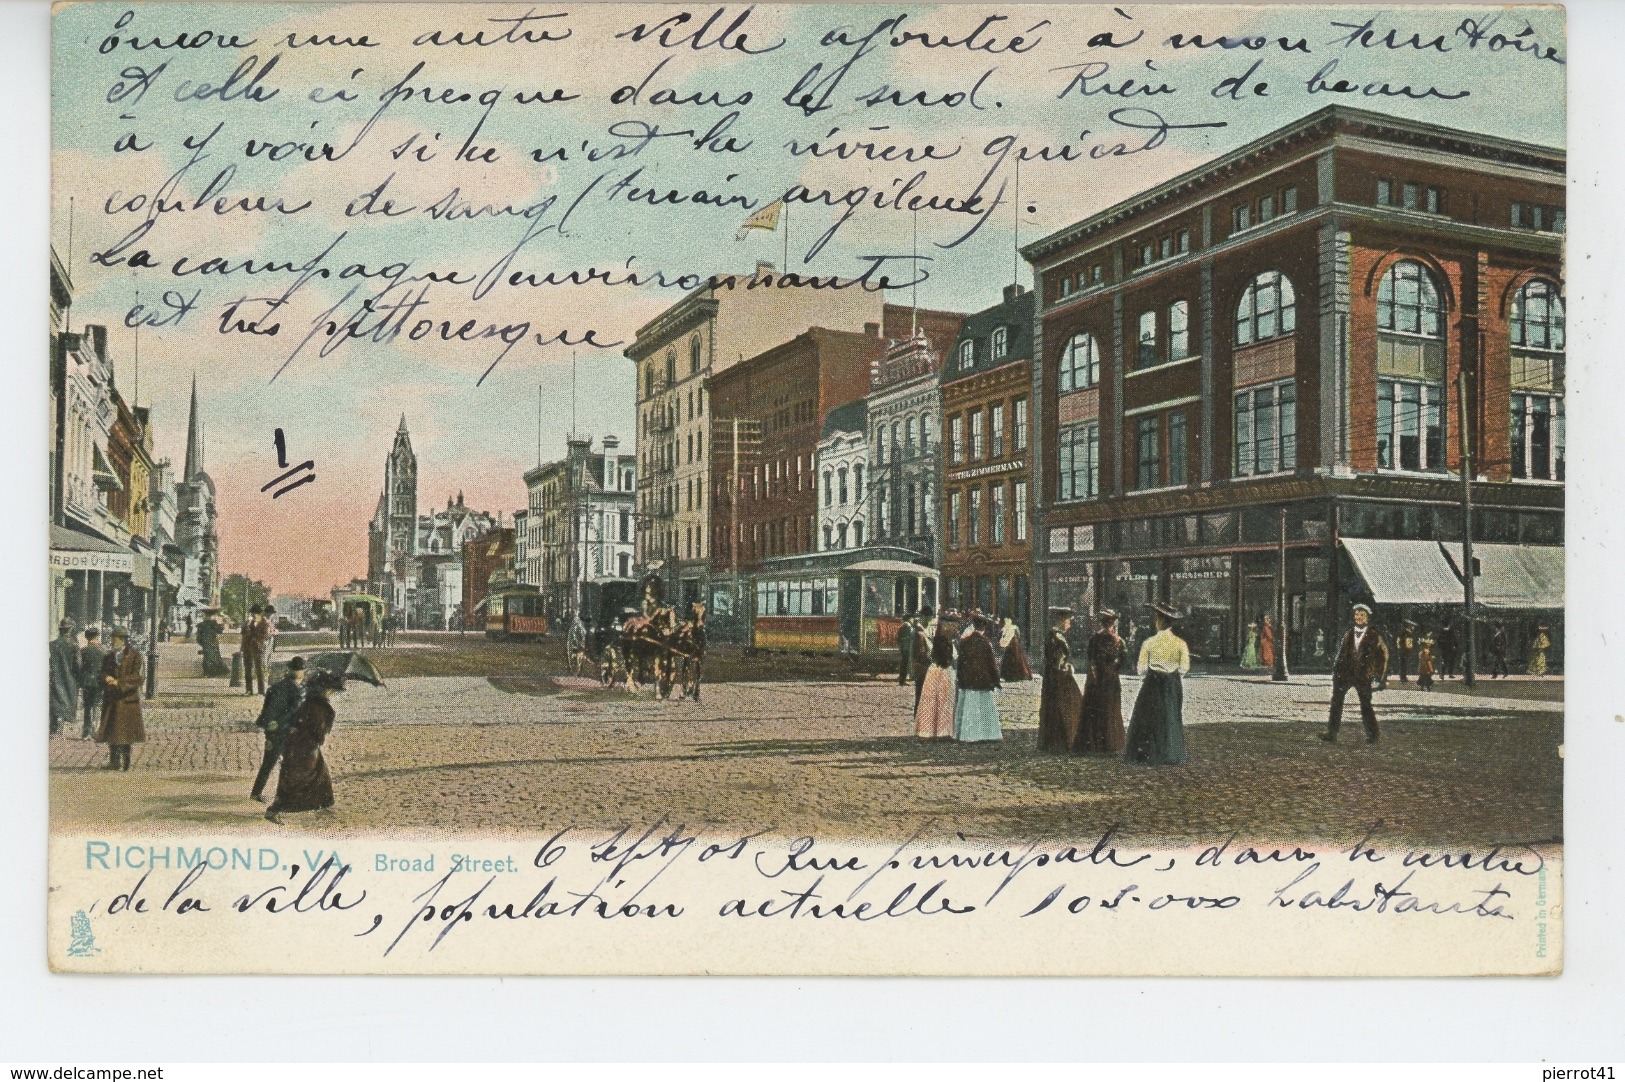 Encore une autre ville ajoutée à mon territoire
et celle ci presque dans le sud. Rien de beau
à y voir si ce n'est la rivière qui est
couleur de sang (terrain argileux).
La campagne environnante
est très pittoresque
1
HOTEL ZIMMERMANN
RBOR OYSTER
RICHMOND. VA. Broad Street. 6 Sept/05 Rue principale, dans le centre
de la ville, population actuelle 105.000 habitants
Printed in Germany
www.delcampe.net
pierrot41